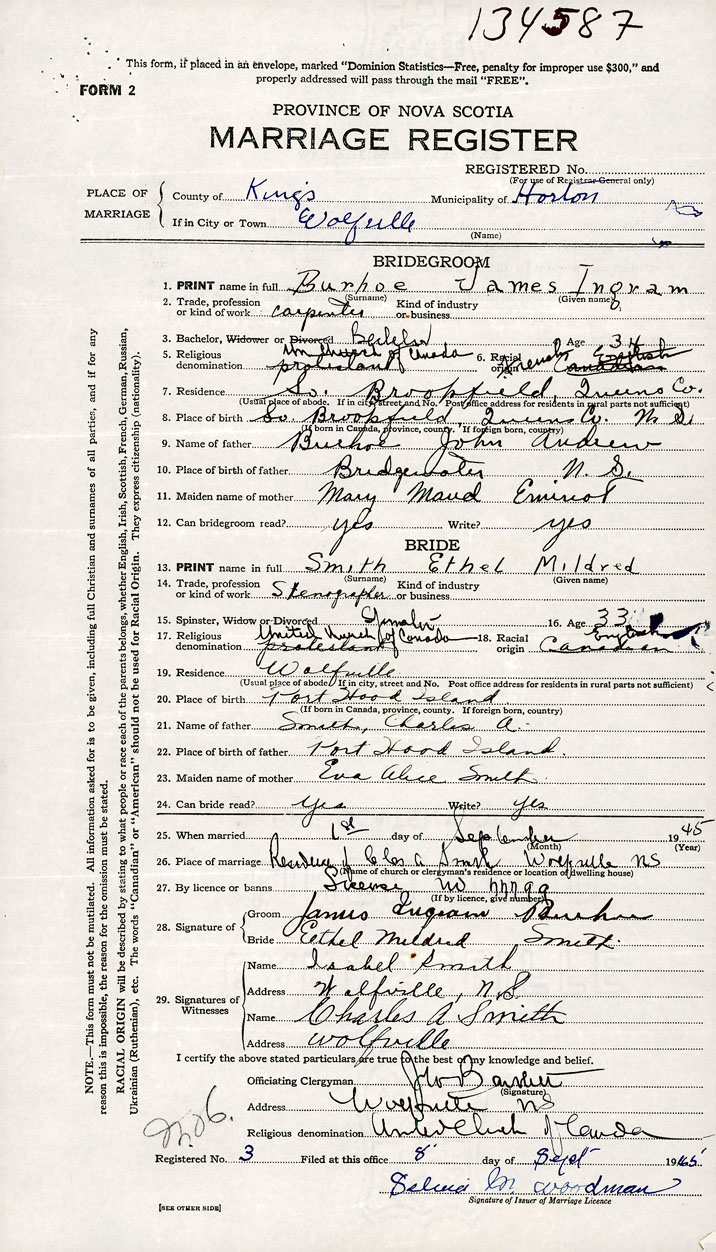 134587
This form, if placed in an envelope, marked "Dominion Statistics—Free, penalty for improper use $300," and
properly addressed will pass through the mail "FREE".
FORM 2
PROVINCE OF NOVA SCOTIA
MARRIAGE REGISTER
REGISTERED No.
(For use of Registrar-General only)
PLACE OF MARRIAGE
County of Kings Municipality of Horton
If in City or Town Wolfville
(Name)
BRIDEGROOM
1. PRINT name in full Burhoe James Ingram
(Surname) (Given name)
2. Trade, profession or kind of work carpenter Kind of industry or business
3. Bachelor, Widower or Divorced Bachelor Age 34
5. Religious denomination Un Church of Canada protestant 6. Racial origin French English Canadian
7. Residence So. Broopfield, Queens Co.
(Usual place of abode. If in city street and No. Post office address for residents in rural parts not sufficient)
8. Place of birth So. Broopfield Queens Co. N.S.
(If born in Canada, province, county. If foreign born, country)
9. Name of father Burhoe John Andrew
10. Place of birth of father Bridgewater N.S.
11. Maiden name of mother Mary Maud Eminot
12. Can bridegroom read? yes Write? yes
BRIDE
13. PRINT name in full Smith Ethel Mildred
(Surname) (Given name)
14. Trade, profession or kind of work Stenographer Kind of industry or business
15. Spinster, Widow or Divorced 16. Age 33
17. Religious denomination United Church of Canada protestant 18. Racial origin English Canadian
19. Residence Wolfville
(Usual place of abode. If in city, street and No. Post office address for residents in rural parts not sufficient)
20. Place of birth Port Hood Island
(If born in Canada, province, county. If foreign born, country)
21. Name of father Smith, Charles A.
22. Place of birth of father Port Hood Island.
23. Maiden name of mother Eva Alice Smith
24. Can bride read? yes Write? yes
25. When married 1st day of September 1945
(Month) (Year)
26. Place of marriage Residence of Chas A Smith Wolfville NS
(Name of church or clergyman's residence or location of dwelling house)
27. By licence or banns License No
(If by licence, give number)
28. Signature of
Groom James Ingram Burhoe
Bride Ethel Mildred Smith.
29. Signatures of Witnesses
Name Isabel Smith
Address Wolfville, N.S.
Name Charles A Smith
Address Wolfville
I certify the above stated particulars are true to the best of my knowledge and belief.
Officiating Clergyman
(Signature)
Address Wolfville NS
Religious denomination United Church of Canada
Registered No. 3 Filed at this office 8 day of Sept 1945
Woodman
Signature of Issuer of Marriage Licence
[SEE OTHER SIDE]
NOTE.—This form must not be mutilated. All information asked for is to be given, including full Christian and surnames of all parties, and if for any
reason this is impossible, the reason for the omission must be stated.
RACIAL ORIGIN will be described by stating to what people or race each of the parents belongs, whether English, Irish, Scottish, French, German, Russian,
Ukrainian (Ruthenian), etc. The words "Canadian" or "American" should not be used for Racial Origin. They express citizenship (nationality).